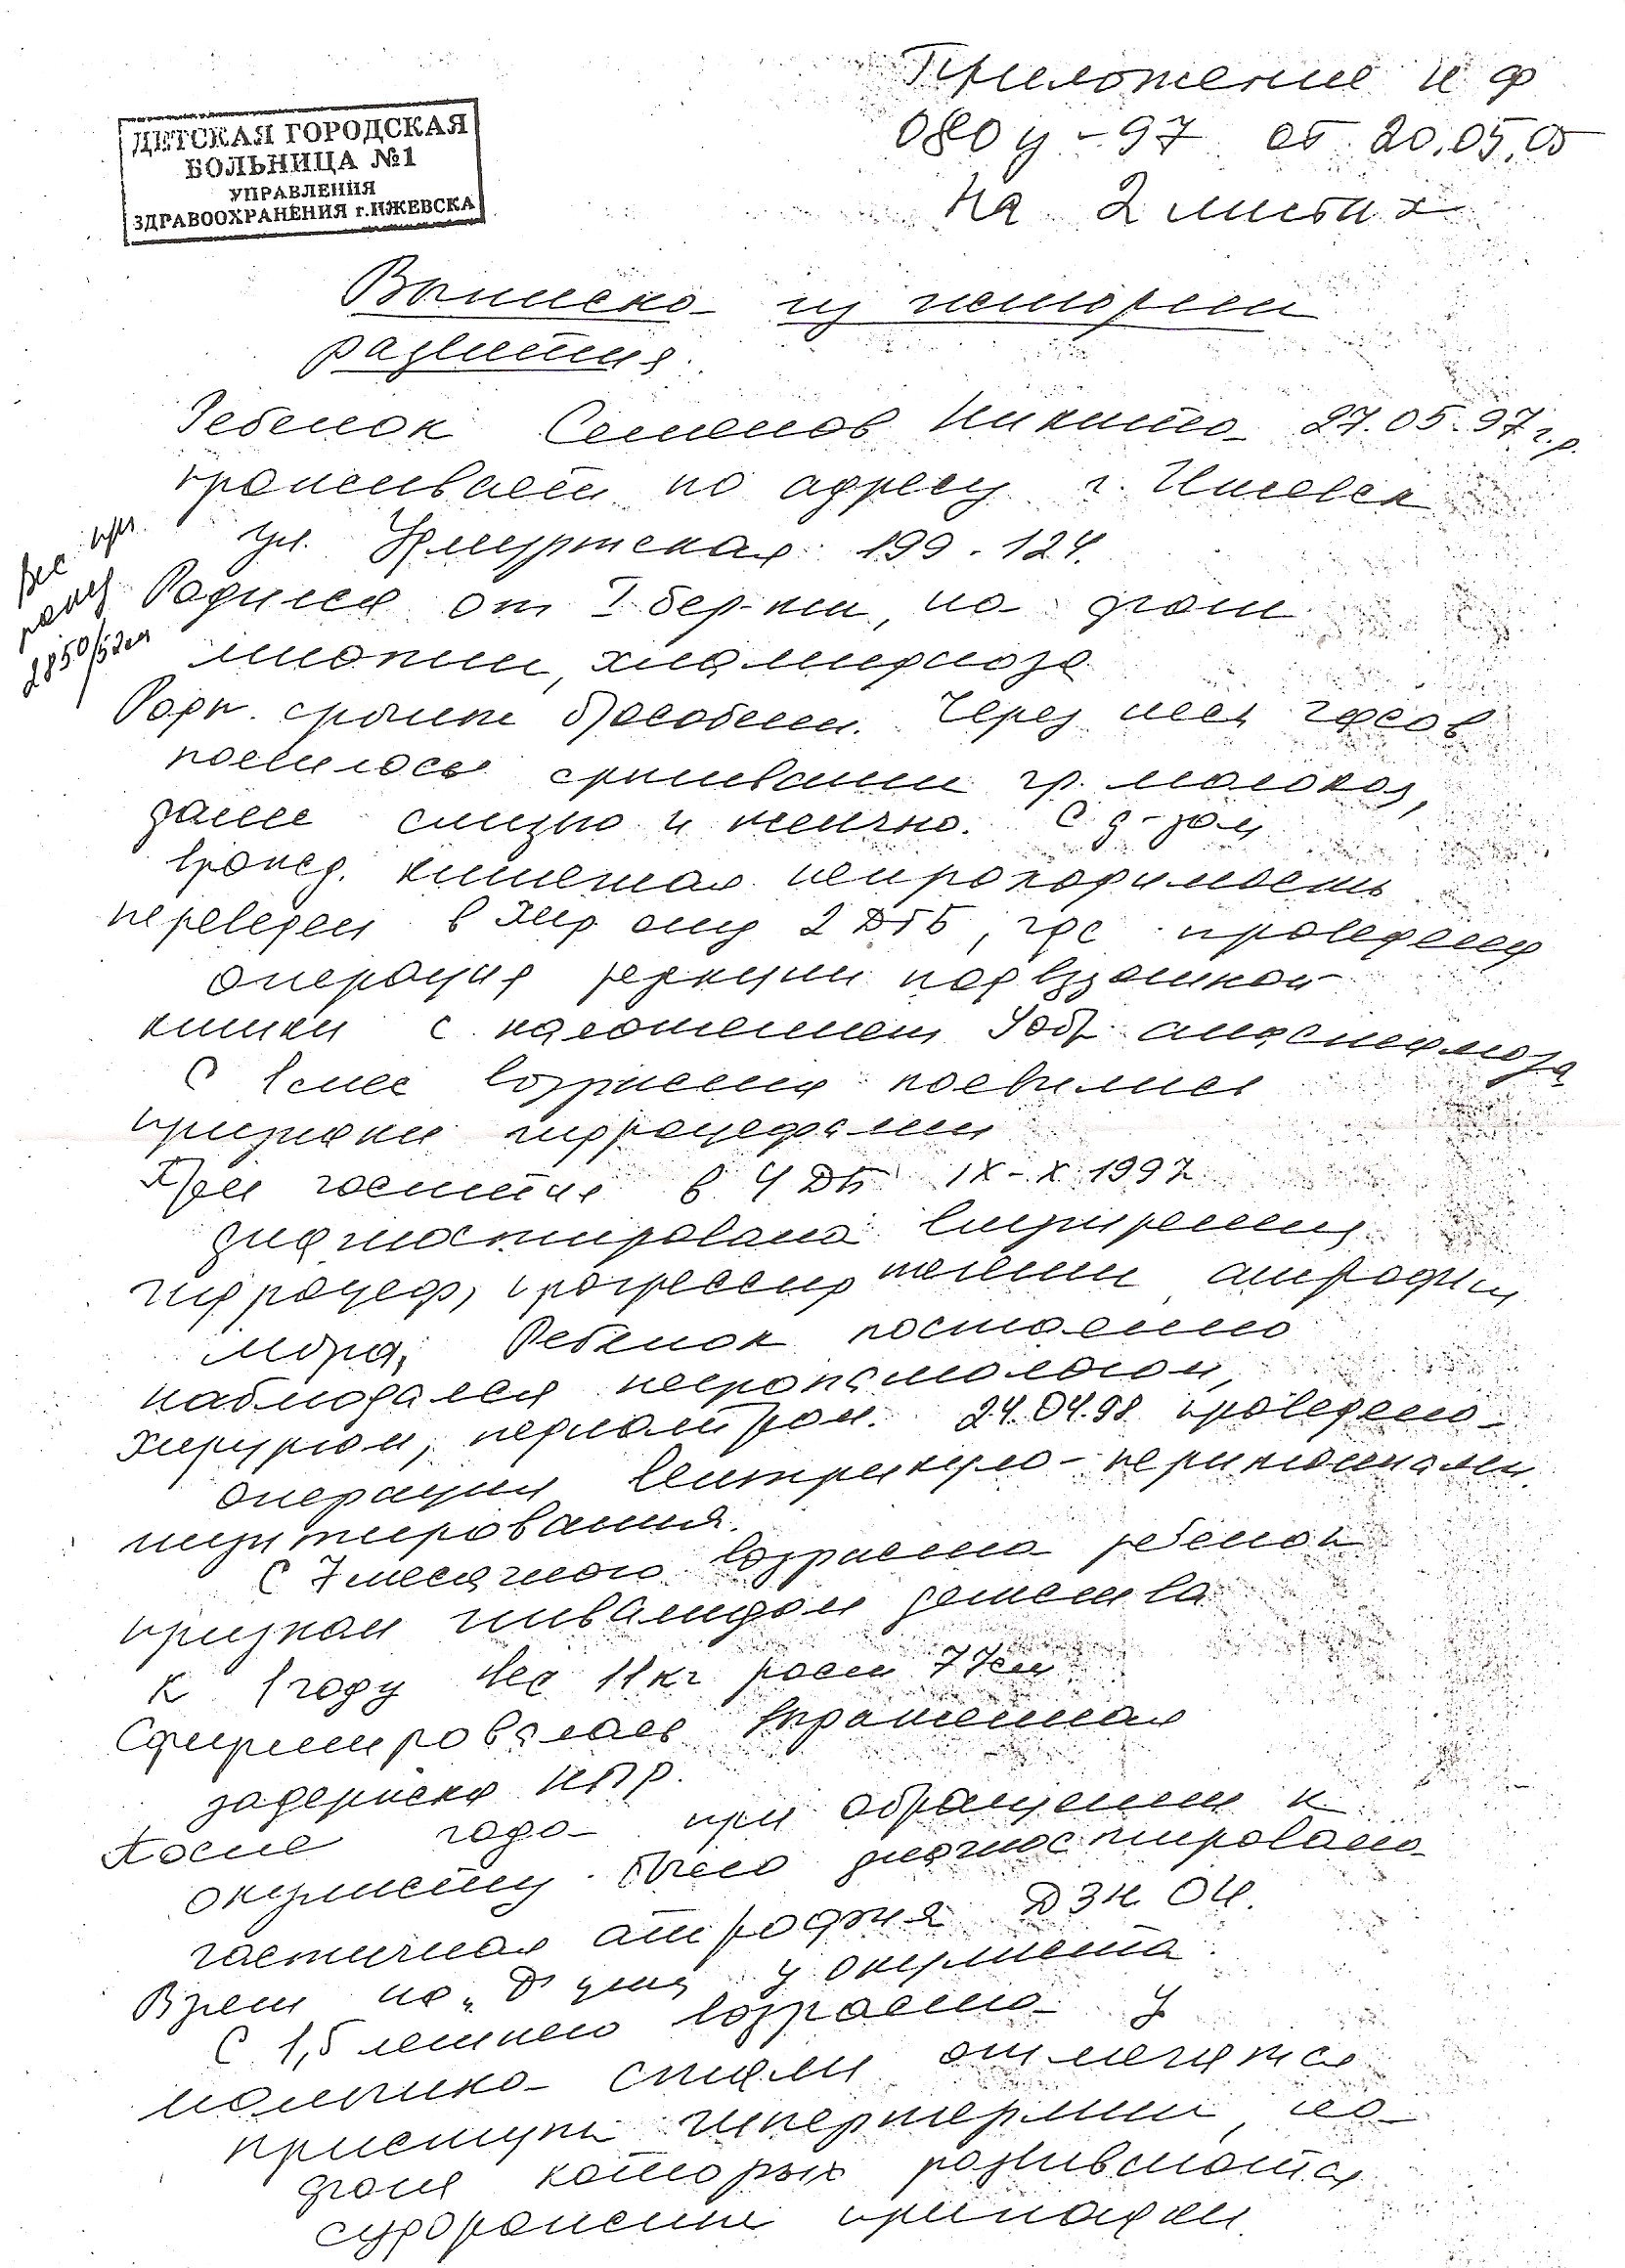 Приложение к ф
080 у - 97 от 20.05.05
на 2 листах
ДЕТСКАЯ ГОРОДСКАЯ
БОЛЬНИЦА №1
УПРАВЛЕНИЯ
ЗДРАВООХРАНЕНИЯ г.ИЖЕВСКА
Выписка из истории
развития.
Ребенок Семенов Никита 27.05.97 г.р.
проживает по адресу г. Ижевск
ул. Удмуртская 199 - 124.
Вес при
рожд
2850/52см
Родился от I бер-ти, на фоне
миопии, хламидиоза
Роды срочные б/особен. Через часов
появилось срыгивание гр. молоком,
далее слизью и желчью. С д-зом
врожд. кишечная непроходимость
переведен в хир отд 2 ДГБ, где проведена
операция резекции подвздошной
кишки с наложением анастомоза
С 1 мес возраста появились
признаки гидроцефалии
При госпит в ЧДБ IX-X 1997
диагностирована внутренняя
гидроцеф, прогрессир течение, атрофия
мозга. Ребенок постоянно
наблюдался невропатологом,
хирургом, педиатром. 24.04.98 проведена
операция вентрикуло-перитонеальн.
шунтирования.
С 7 месячного возраста ребенок
признан инвалидом детства
К 1 году вес 11 кг рост 77 см
Сформировалась выраженная
задержка НПР.
После года при обращении к
окулисту было диагностировано
частичная атрофия ДЗН ОИ.
Взят на "Д" учет у окулиста.
С 1,5 летнего возраста у
мальчика стали отмечатся
приступы гипертермии, на
фоне которых развиваются
судорожные припадки